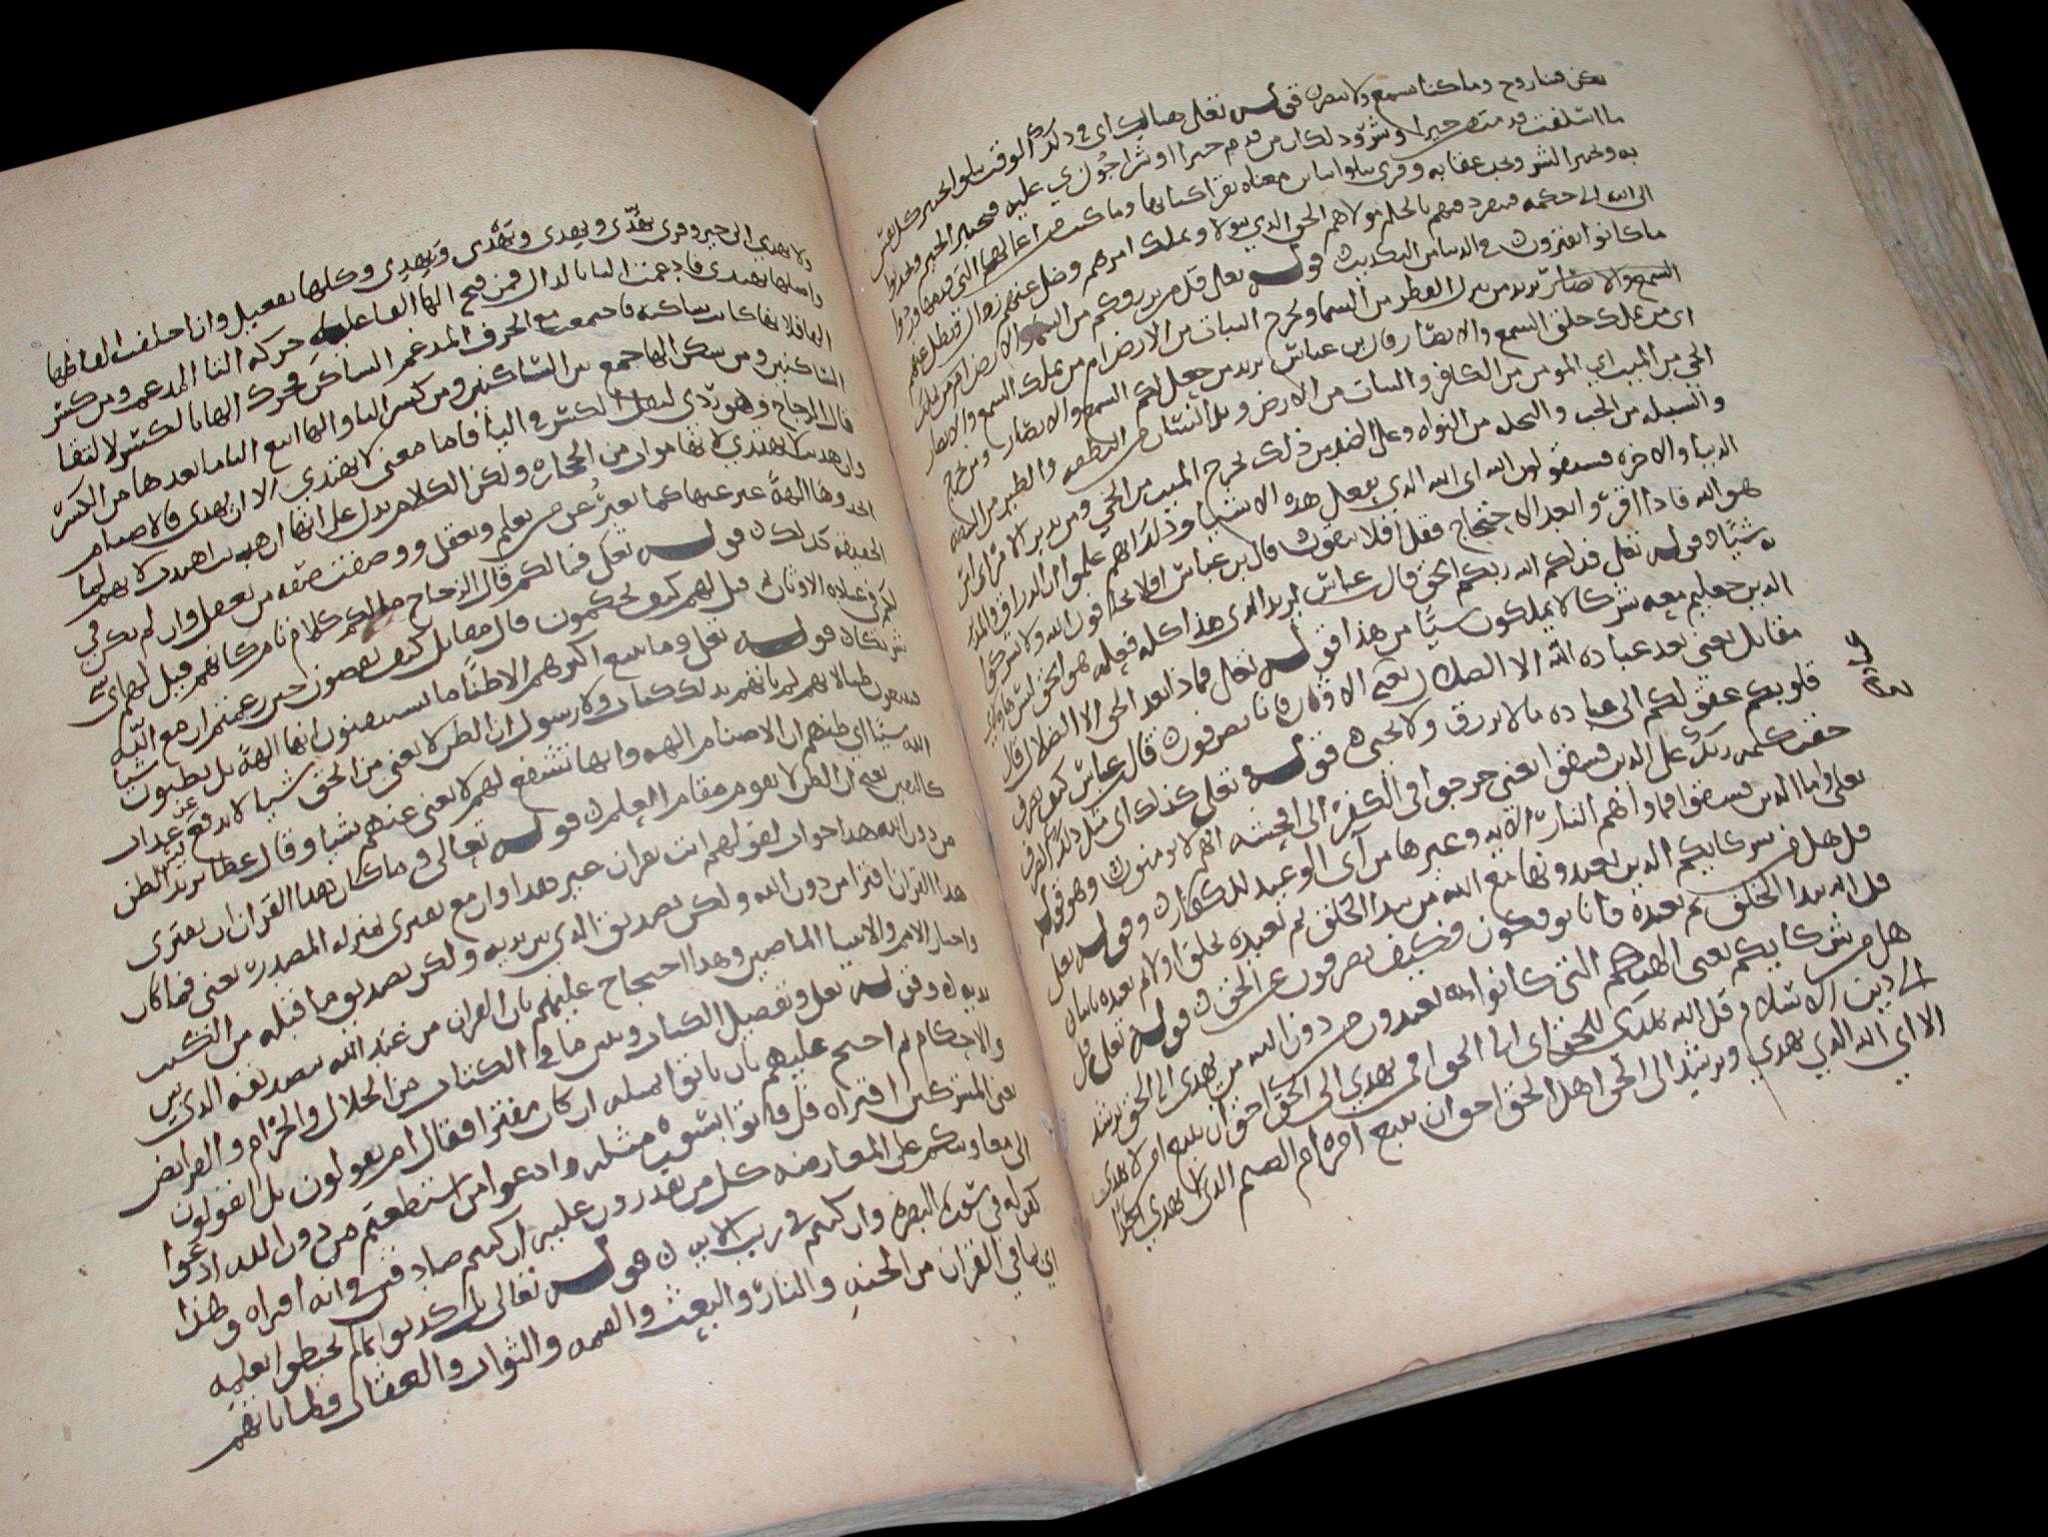 يكن فينا روح وما كنا نسمع ولا نبصر قوله تعلى هنالك اى فى ذلك الوقت تبلوا تختبر كل نفس
ما اسلفت قدمت خيرا وشر وذلك ان من قدم خيرا او شرا جوزي عليه فيختبر الخير ويجد ثوا
به ويختبر الشر ويجد عقابه وقرى تتلوا اىاى معناه تقرا كتابها وما كتب من اعمالها التى قدمتها وردوا
الى الله الى حكمه فينفرد فيهم بالحكم مولاهم الحق الذي يتولا ويملك امرهم وضل عنهم زوال وبطل عنهم
ما كانوا يفترون فى الدنيا من التكذيب قوله تعلى قل من يرزقكم من السماء والارض ام من يملك
السمع والابصار يريد من ينزل القطر من السما ويخرج النبات من الارض ام من يملك السمع والابصار
اى من يملك خلق السمع والابصار قال بن عباس يريد من جعل لكم السمع والابصار ومن يخرج
الحي من الميت اي المومن من الكافر والنبات من الارض والانسان من النطفه والطير من البيضه
والسنبله من الحب والنخله من النواه وعلى الضد من ذلك يخرج الميت من الحي ومن يدبر الامر اى امر
الدنيا والاخره فسيقولون الله اى الله الذي يفعل هذه الاشيا وذلك انهم علموا ان الرزاق والمدبر
هو الله فاذا اقروا بعد الاحتجاج فقل افلا تتقون قال بن عباس افلا تخافون الله ولا تشركوا
به شيئا وقوله تعلى فذلكم الله ربكم الحق قال عباس يريد الذي هذا كله فعله هو الحق ليس هاولاى
الذين جعلتم معه شركا لا يملكون شيئا من هذا قوله تعلى فماذا بعد الحق الا الضلال قال
مقاتل يعني بعد عباده الله الا الضلال يعني الاوثان فانا تصرفون قال عباس كيف تصرف
قلوبكم عقولكم الى عباده ما لا يرزق ولا يحيى قوله تعلى كذلك اى مثل ذلك الصرف
حقت كلمه ربك على الذين فسقوا يعني خرجوا فى الكفر الى افحشه انهم لا يومنون وهو قوله
تعلى واما الذين فسقوا فماواهم النار الايه وغيرها من آى الوعيد للكفار وقوله تعلى
قل هل من شركايكم الذين تعبدونها مع الله من يبدا الخلق ثم يعيده
قل الله يبدا الخلق ثم يعيده فانا توفكون فكيف تصرفون عن الحق قوله تعلى قل
هل من شركايكم يعنى الهتكم التى كانوا تعبدون من دون الله من يهدى الى الحق يرشد
الى دين الاسلام قل الله يهدى للحق اى الى الحق افمن يهدي الى الحق احق ان يتبع امن لا يهدى
الا اي الله الذي يهدي ويرشد الى الحق اهل الحق احق ان يتبع امره ام الصنم الذى لا يهدي احدا
ولا يهدي الى خير وقرى يهدّى ويهدى وتهدى ويهدى وكلها يفتعل وان اختلفت الفاظها
واصلها يهتدى فادغمت التا بالدال فمن فتح الها القا عليه حركه التا المدغمه ومن كسر
الها فلانها كانت ساكنه فاجتمعت مع الحرف المدغم الساكن فحرك الها بالكسر لالتقا
الساكنين ومن سكن الها جمع بين الساكنين ومن كسر اليا والها اتبع اليا ما بعدها من الكسر
قال الزجاج وهو ردى لثقل الكسر فى اليا فاما معنى لا يهتدى الا ان يهدى فالاصنام
وان هديت لا تهتدي لانها موات من الحجاره ولكن الكلام يدل على انها ان هديت اهتدت لانهم لما
اتخذوها الهة عبر عنها كما يعبر عن من يعلم ويعقل ووصفت صفه من يعقل وان لم يكن فى
الحقيقه كذلك قوله تعلى فما لكم قال الزجاج ما لكم كلام تام كانهم قيل لهم اى شى
لكم فى عباده الاوثان ثم قيل لهم كيف تحكمون قال مقاتل كيف تقضون حين زعمتم ان مع الله
شريكا قوله تعلى وما يتبع اكثرهم الا ظنا ما يستيقنون انها الهة بل يظنون
شيا
الله شيا اى ظنهم ان الاصنام الهه وانها تشفع لهم لا يغنى عنهم شيا وقال عطا يريد
كاليقين يعني ان الظن لا يقوم مقام العلم قوله تعالى وما كان هذا القران ان يفترى
من دون الله هذا جواب لقولهم ائت بقران غير هذا وان مع يفترى بمنزله المصدر يعنى فما كان
هذا القران افترا من دون الله ولكن تصديق الذي بين يديه ولكن تصديق ما قبله من الكتب
واخبار الامم والانبيا الماضين وهذا احتجاج عليهم بان القران من عند الله بتصديقه الذى بين
يديه وقوله تعلى وتفصيل الكتاب وتبيين ما فى الكتاب من الحلال والحرام والفرايض
والاحكام ثم احتج عليهم بان ياتوا بمثله ان كان مفترا فقال ام يقولون بل ايقولون
يعنى المشركين افتراه قل فاتوا بسوره مثله وادعوا من استطعتم من دون الله ادعوا
الى معاونتكم على المعارضه كل من تقدرون عليه ان كنتم صادقين فى انه افتراه وهذا
كقوله فى سوره البقره وان كنتم فى ريب الايه قوله تعالى بل كذبوا بما لم يحيطوا بعلمه
اي بما في القران من الجنه والنار والبعث والقيمه والثواب والعقاب ولما ياتهم